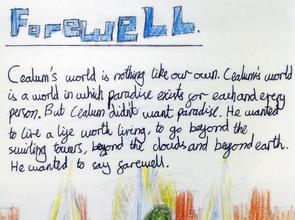 FAREWELL.
Cealum's world is nothing like our own. Cealum's world
is a world in which paradise exists for each and every
person. But Cealum didn't want paradise. He wanted
to live a life worth living, to go beyond the
swirling towers, beyond the clouds and beyond earth.
He wanted to say farewell.